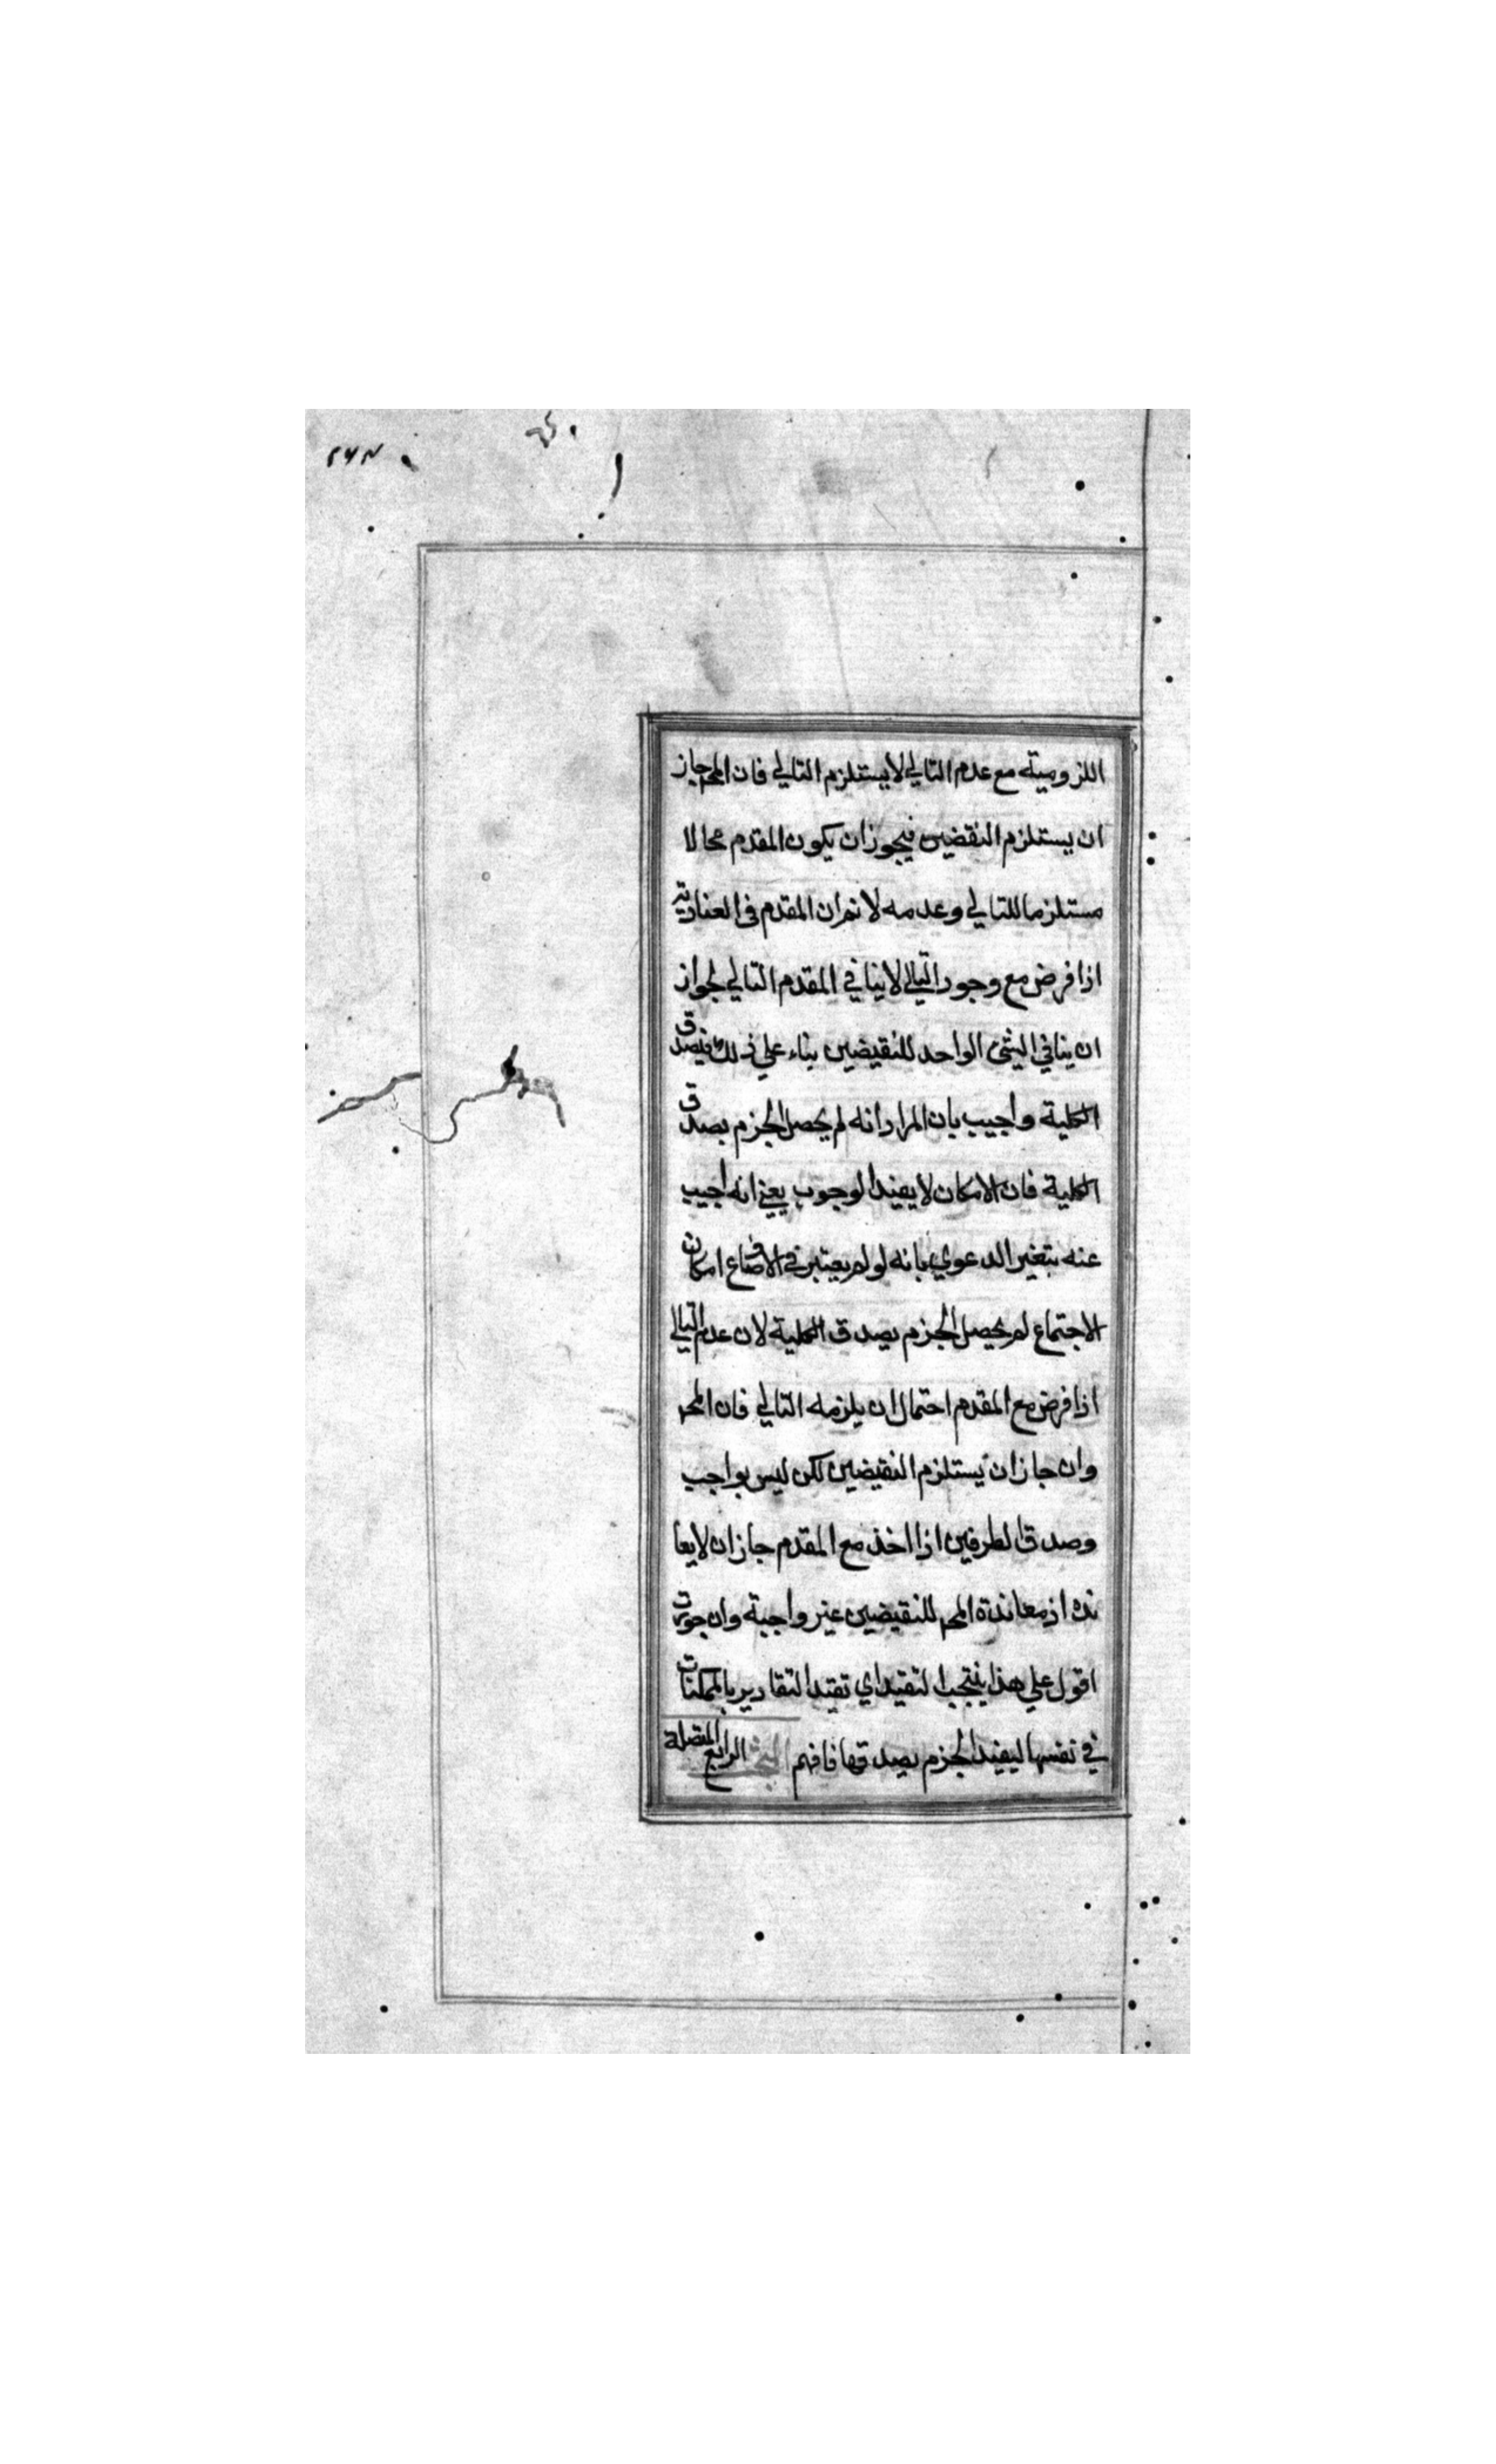 ۲۶۴
اللزومية مع عدم التالي لا يستلزم التالي فان المح جاز
ان يستلزم النقضين فيجوز ان يكون المقدم محالا
مستلزما للتالي وعدمه لا نم ان المقدم فى العنادية
اذا فرض مع وجود التالي لا ينافي المقدم التالي لجواز
ان ينافي الشئ الواحد للنقيضين بناء علي ذلك فيصدق
الكلية واجيب بان المراد انه لم يحصل الجزم بصدق
الكلية فان الامكان لا يفيد الوجوب يعني انه اجيب
عنه بتغير الدعوي بانه لو لم يعتبر في الاوضاع امكان
الاجتماع لم يحصل الجزم بصدق الكلية لان عدم التالي
اذا فرض مع المقدم احتمال ان يلزمه التالي فان المح
وان جاز ان يستلزم النقيضين لكن ليس بواجب
وصدق الطرفين اذا اخذ مع المقدم جاز ان لا يعا
نده اذ معاندة المح للنقيضين غير واجبة وان جوزت
اقول علي هذا التقيد اي تقيد التقادير بالممكنات
في نفسها ليفيد الجزم بصدقها فافهم البحث الرابع المتصلة